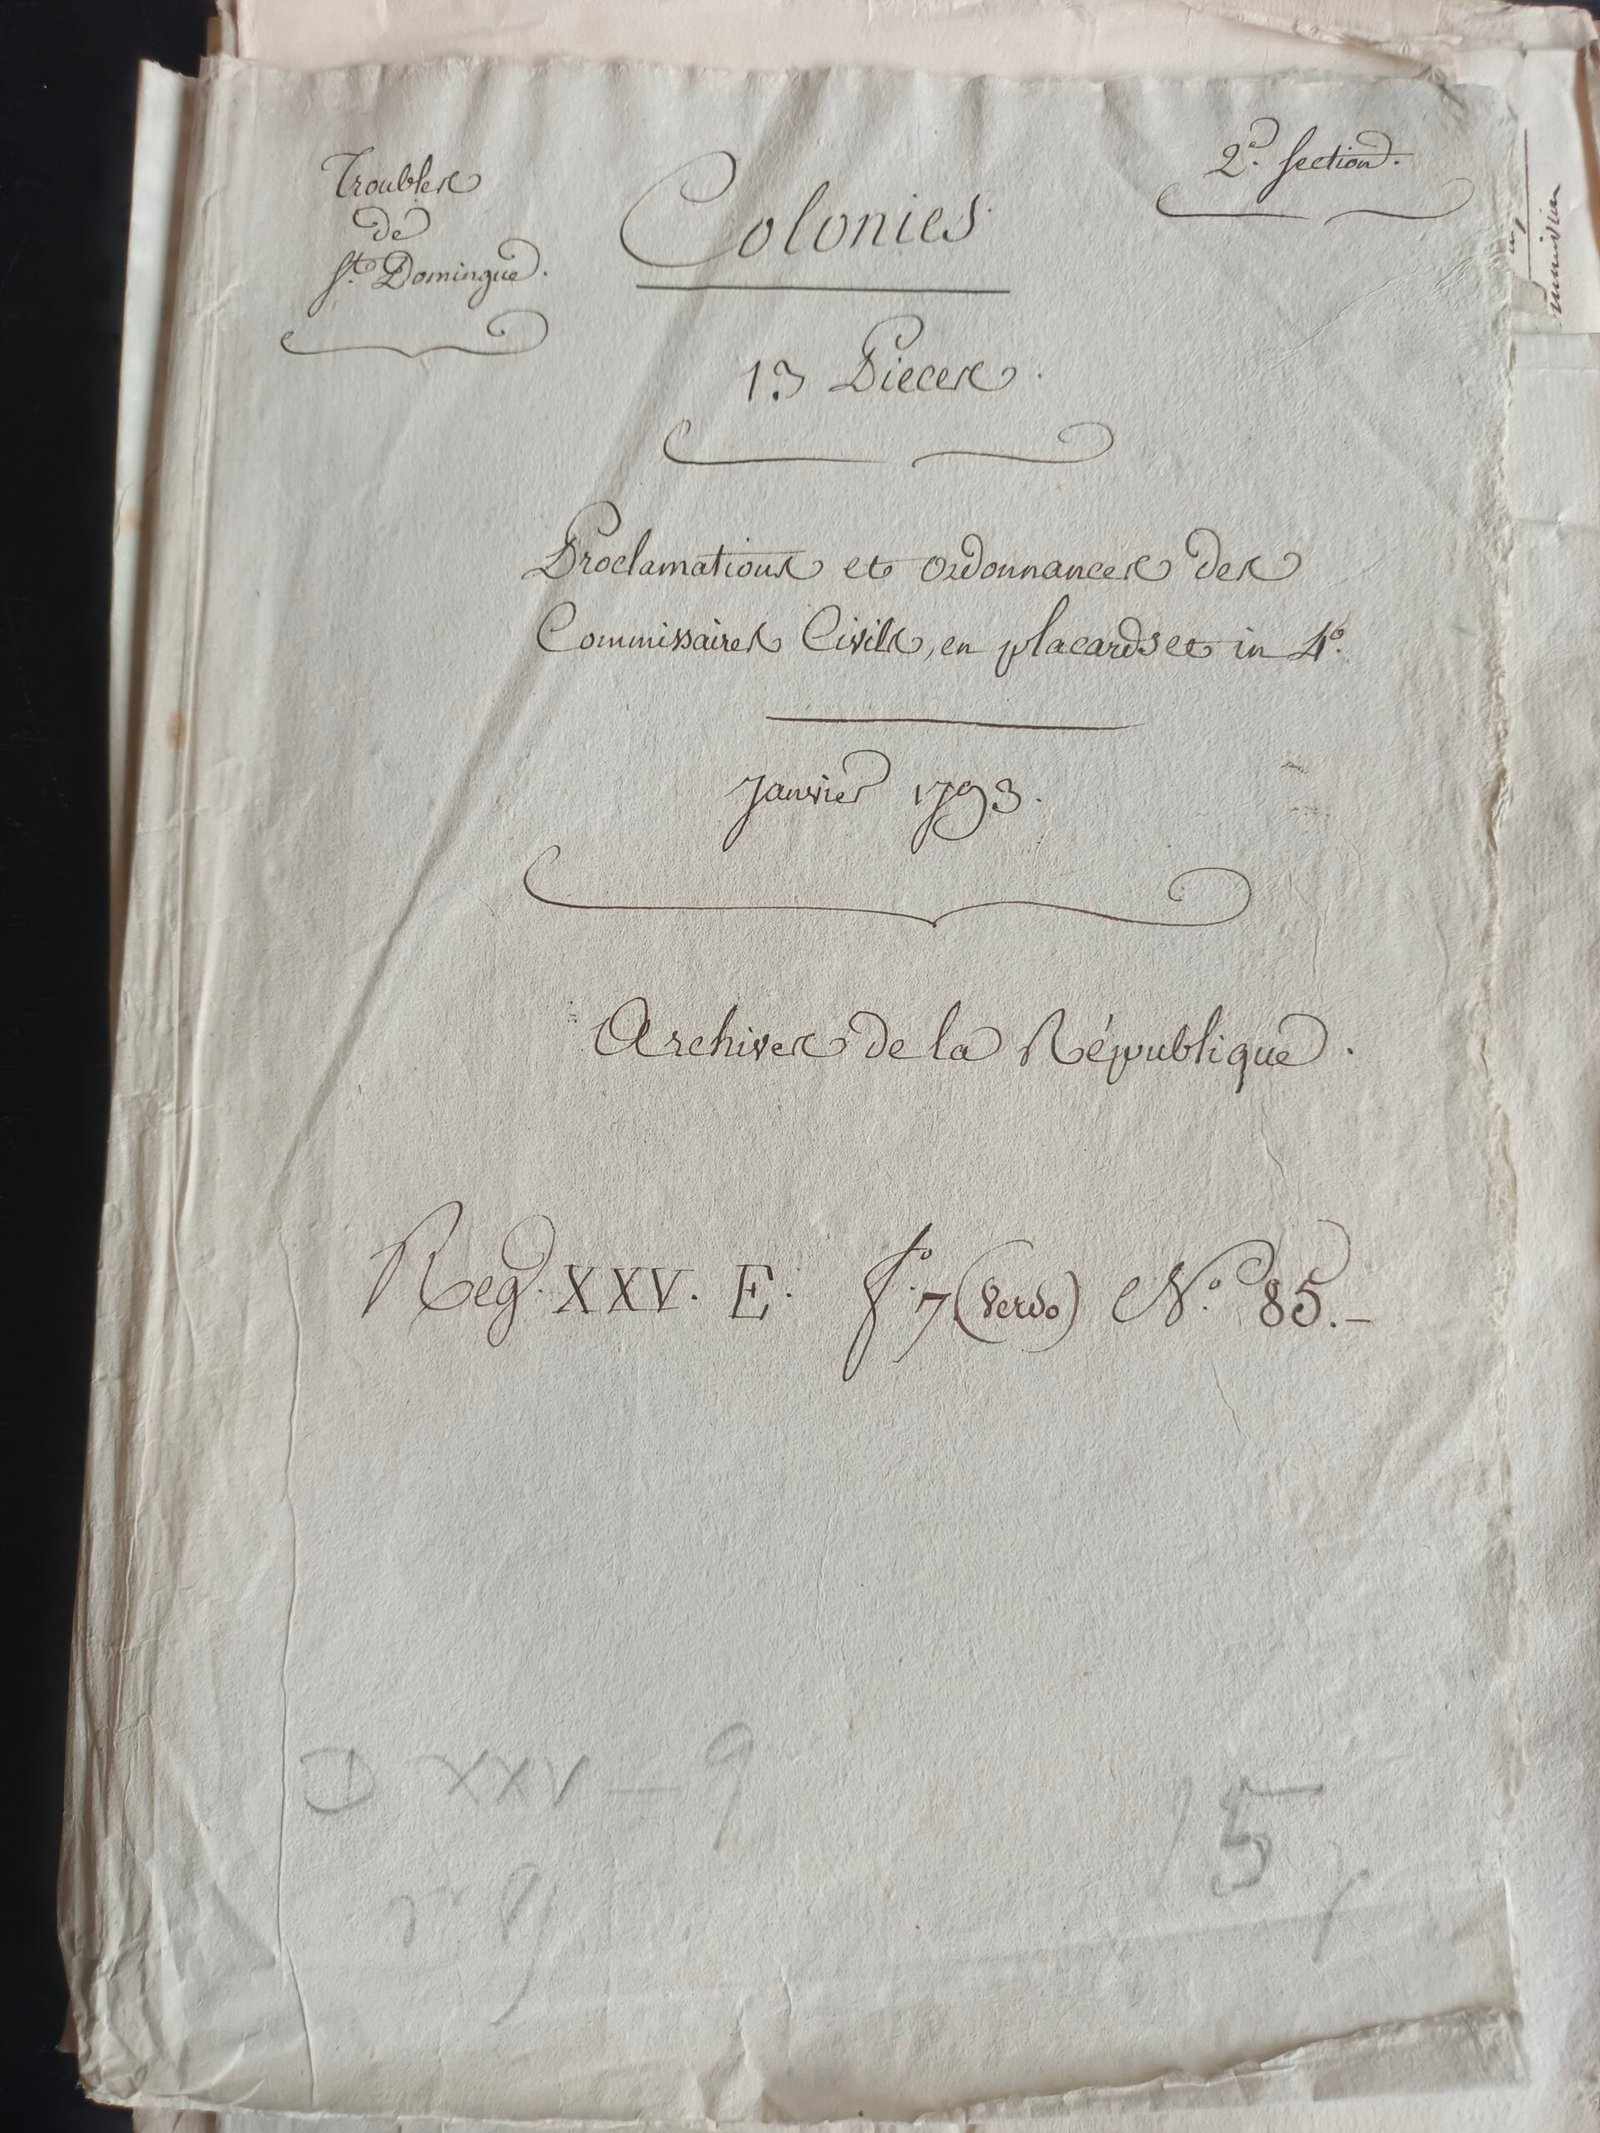 Troubles
de
St. Domingue.
2e. Section.
Colonies
13 Pieces.
Proclamations et ordonnances des
Commissaires Civils, en placards et in 4º.
Janvier 1793.
Archives de la République.
Reg. XXV. E. fº. 7 (verso) Nº. 85.-
D XXV - 9
nº 9
15